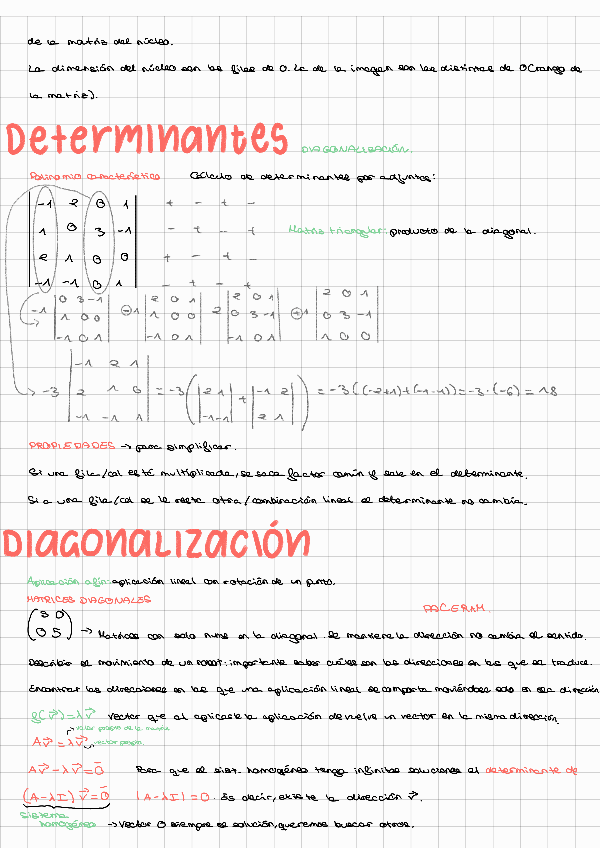 de la matriz del núcleo.
La dimensión del núcleo son las filas de 0. La de la imagen son las distintas de 0 (rango de
la matriz).
Determinantes DIAGONALIZACIÓN.
Polinomio característico Cálculo de determinantes por adjuntos:
-1 2 0 1 + - + -
1 0 3 -1 - + - + Matriz triangular: producto de la diagonal.
2 1 0 0 + - + -
-1 -1 0 1 - + - +
-1 |0 3 -1| ⊖1 |2 0 1| 2 |2 0 1| ⊕1 |2 0 1|
|1 0 0| |1 0 0| |0 3 -1| |0 3 -1|
|-1 0 1| |-1 0 1| |-1 0 1| |1 0 0|
|-1 2 1|
-3 |2 1 0| = -3 (|2 1| + |-1 2|) = -3((-2+1)+(-1-4)) = -3·(-6) = 18
|-1 -1 1| |-1 -1| |2 1|
PROPIEDADES → para simplificar.
Si una fila/col está multiplicada, se saca factor común y sale en el determinante.
Si a una fila/col se le resta otra/combinación lineal el determinante no cambia.
DIAGONALIZACIÓN
Aplicación afín: aplicación lineal con rotación de un punto.
MATRICES DIAGONALES
(3 0
0 5) → Matrices con solo nums en la diagonal. Se mantiene la dirección no cambia el sentido.
Describir el movimiento de un robot: importante saber cuáles son las direcciones en las que se traduce.
Encontrar las direcciones en las que una aplicación lineal se comporta moviéndose solo en esa dirección
f(v⃗)=λv⃗ Vector que al aplicarle la aplicación devuelve un vector en la misma dirección.
valor propio de la matriz
Av⃗ = λv⃗ vector propio.
Av⃗ - λv⃗ = 0⃗ Para que el sist. homogéneo tenga infinitas soluciones el determinante de
(A-λI)v⃗ = 0⃗ |A-λI| = 0. Es decir, existe la dirección v⃗.
Sistema
homogéneo → Vector 0 siempre es solución, queremos buscar otros.